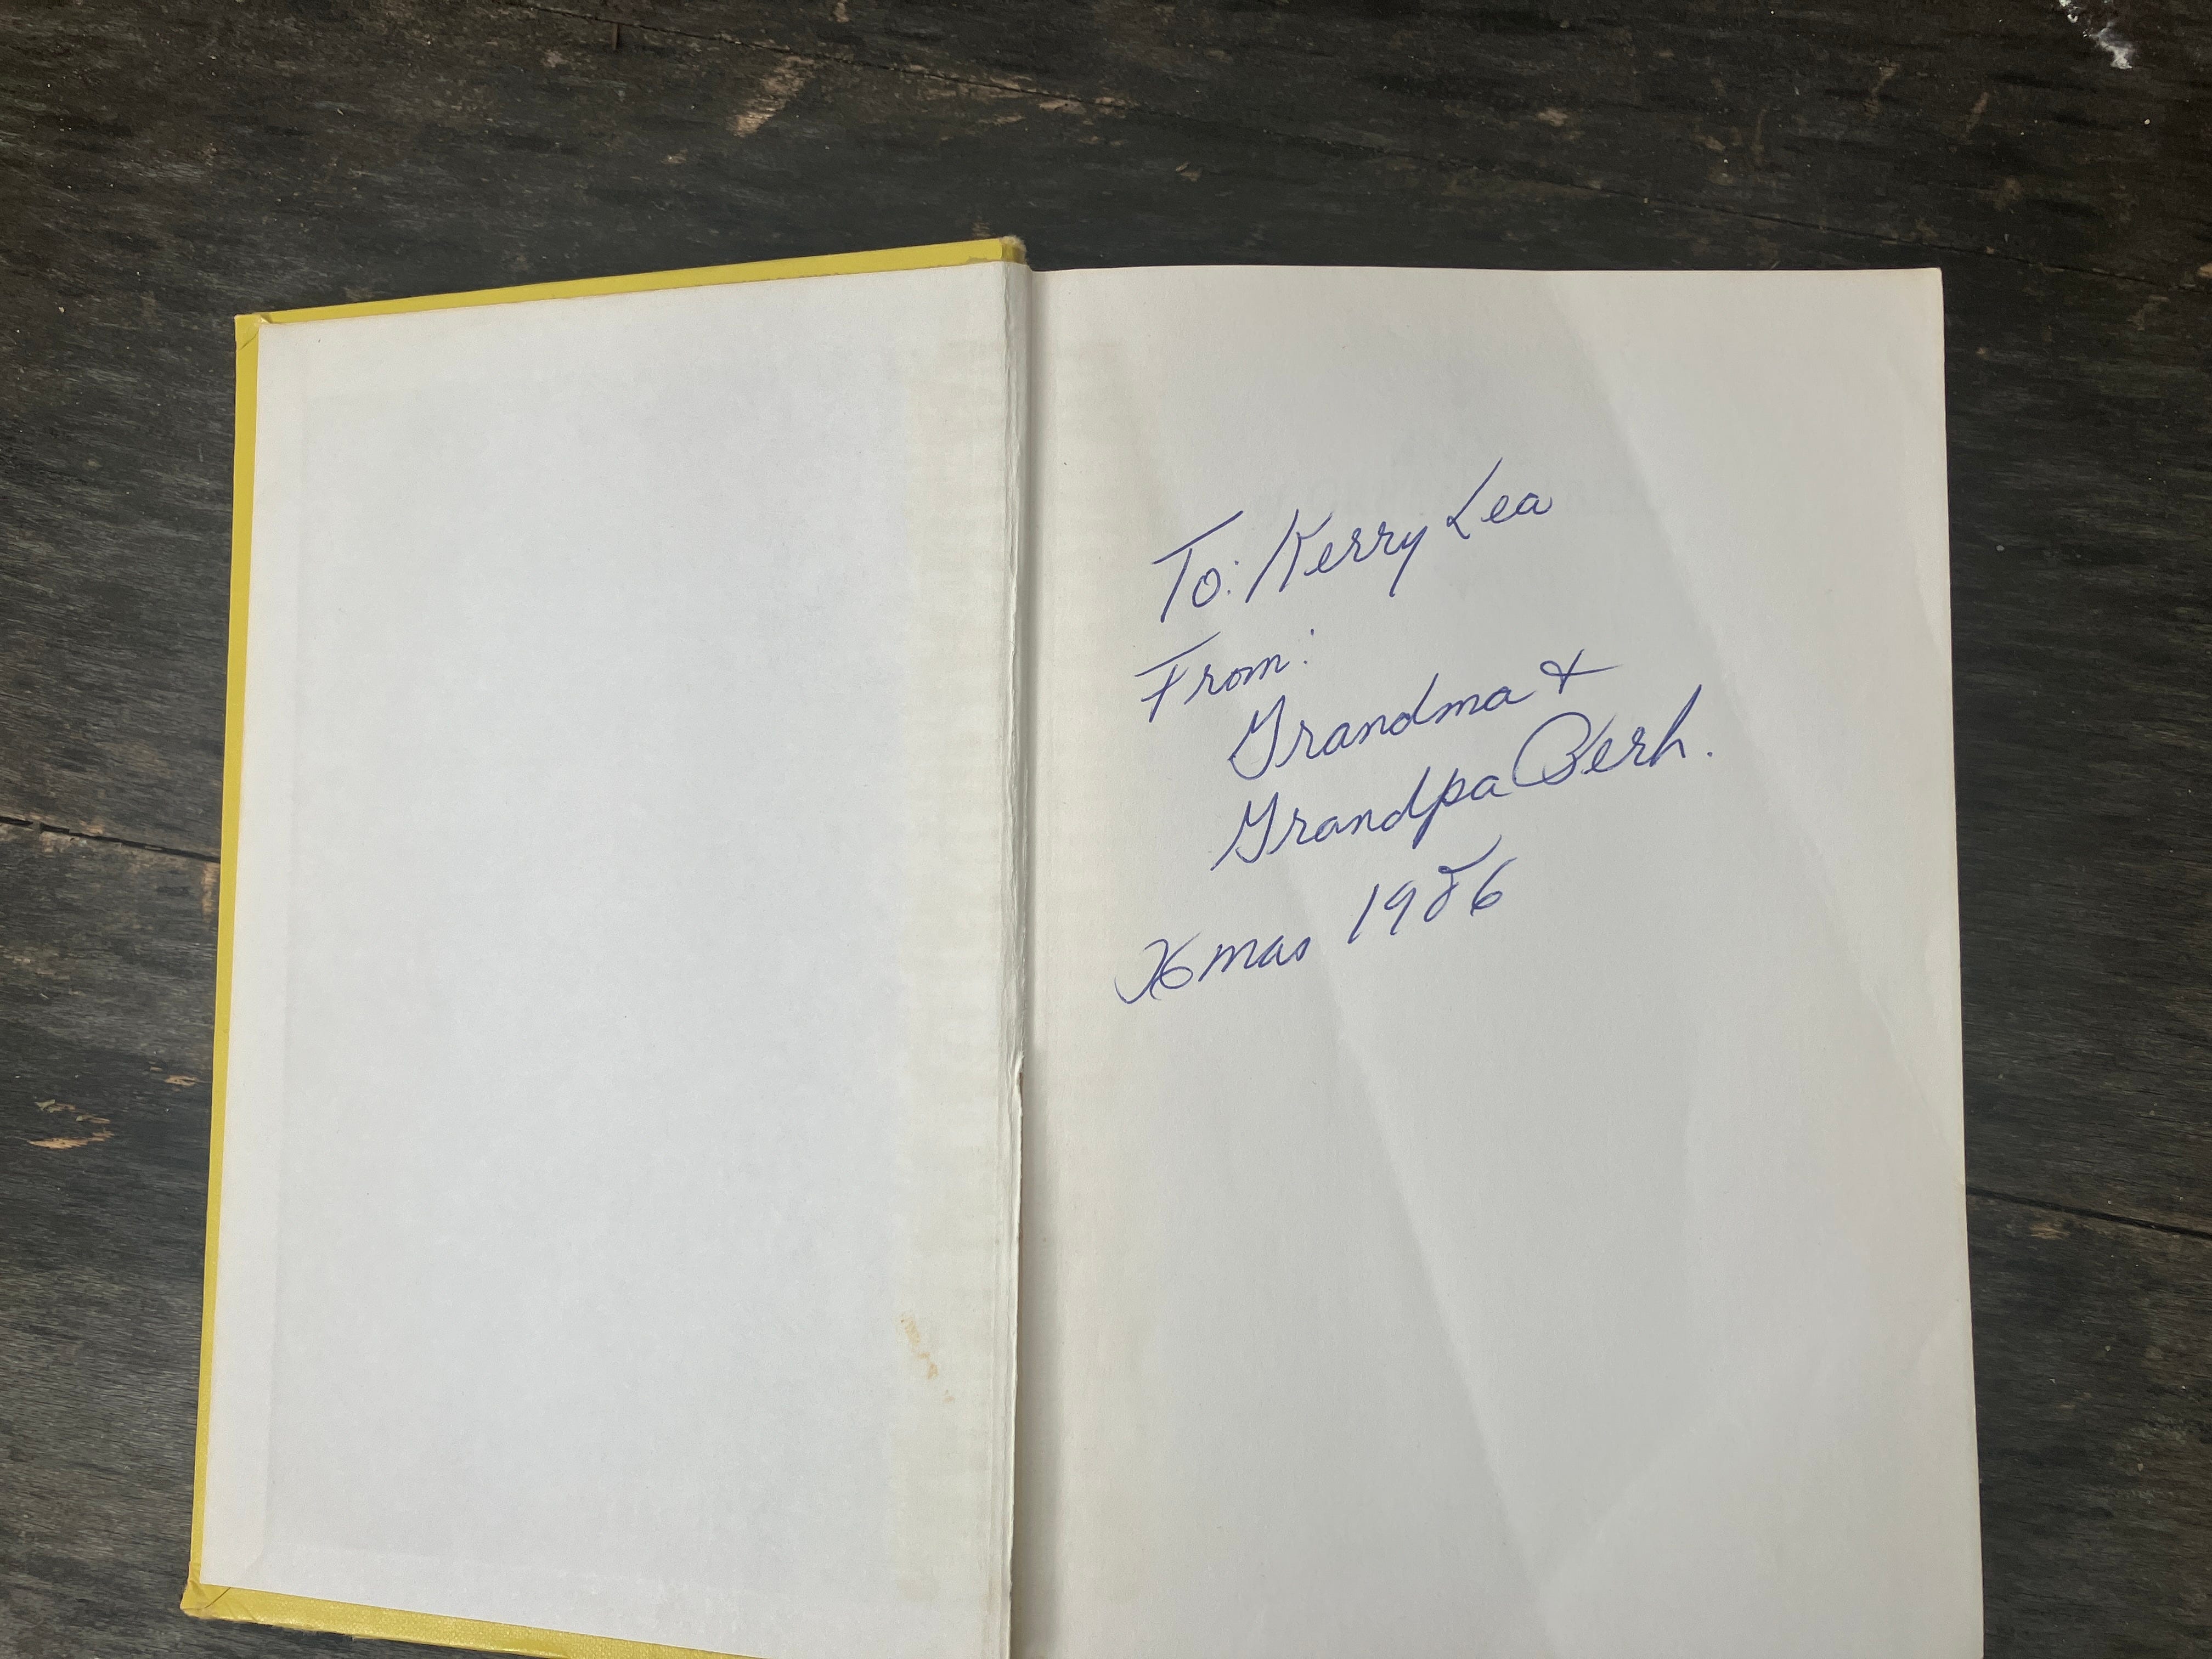 To: Kerry Lea
From:
Grandma &
Grandpa Berh.
Xmas 1986